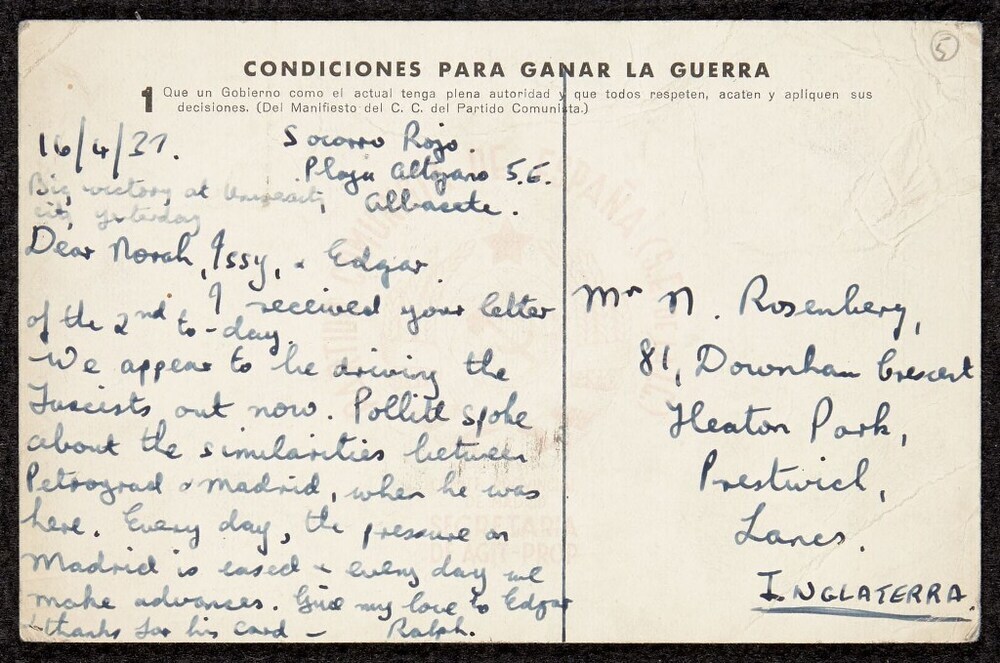 5
CONDICIONES PARA GANAR LA GUERRA
1 Que un Gobierno como el actual tenga plena autoridad y que todos respeten, acaten y apliquen sus
decisiones. (Del Manifiesto del C. C. del Partido Comunista.)
16/4/37.
Socorro Rojo.
Plaza Altozano S.E.
Albacete.
Big victory at University
city yesterday
Dear Norah, Issy, & Edgar
I received your letter
of the 2nd to-day.
We appear to be driving the
Fascists out now. Pollitt spoke
about the similarities between
Petrograd & Madrid, when he was
here. Every day, the pressure on
Madrid is eased & every day we
make advances. Give my love to Edgar
& thanks for his card – Ralph.
Mr N. Rosenberg,
81, Downham Crescent
Heaton Park,
Prestwich,
Lancs.
INGLATERRA.